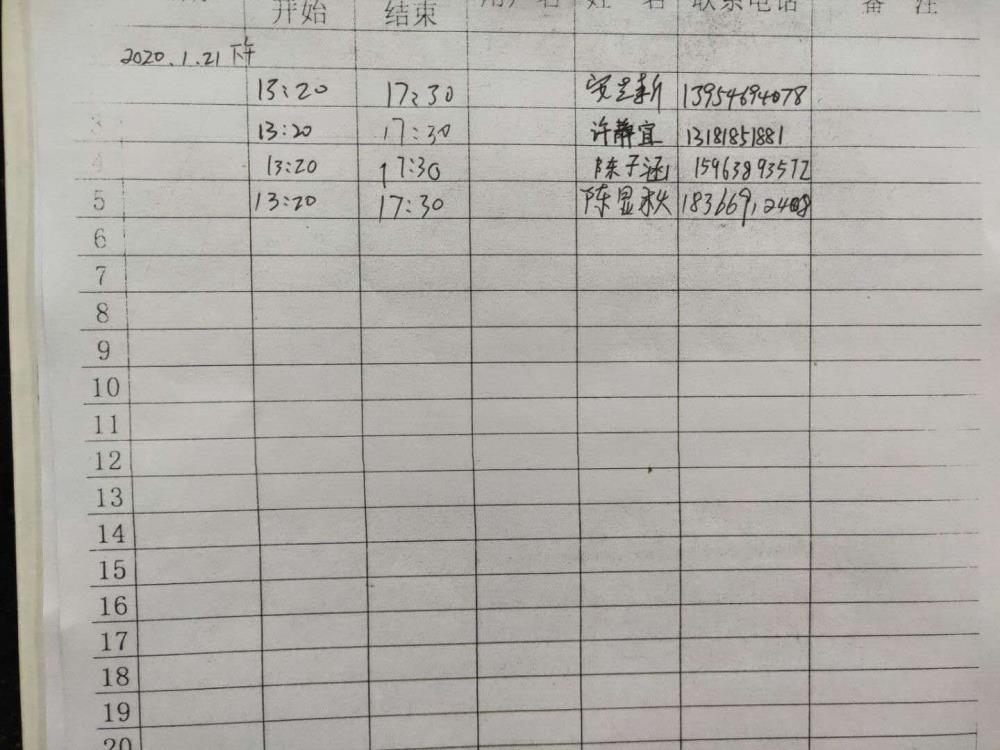 开始 结束 用户名 姓 名 联系电话 备 注
2020.1.21 下午
13:20 17:30 13954694078
3 13:20 17:30 许静宜 13181851881
4 13:20 17:30 陈子涵 15963893572
5 13:20 17:30 陈显秋 18366912408
6
7
8
9
10
11
12
13
14
15
16
17
18
19
20